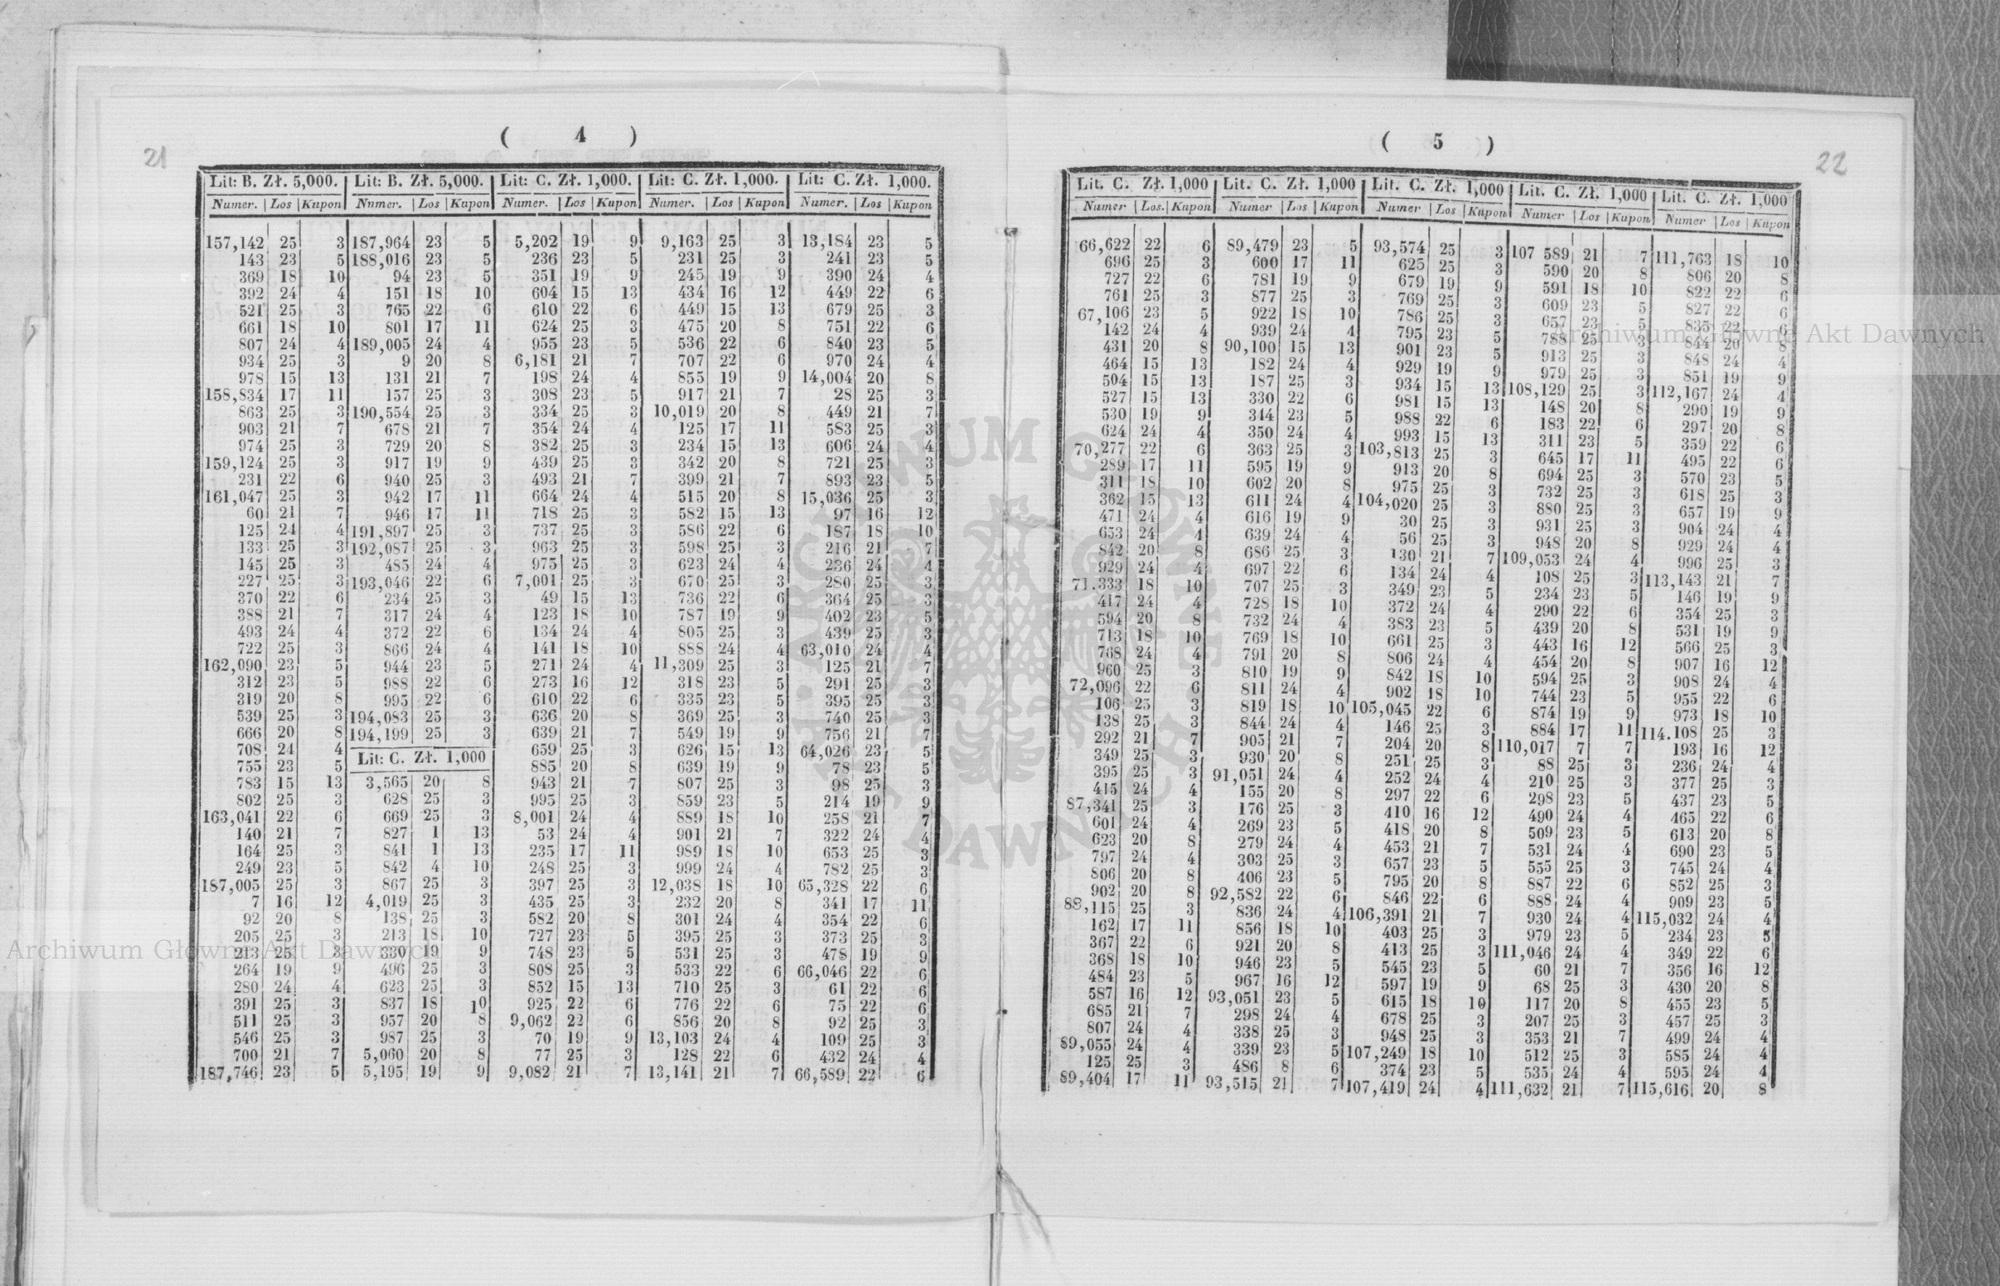 21
( 4 )
Lit: B. Zł. 5,000.
Numer. Los Kupon
157,142 25 3
143 23 5
369 18 10
392 24 4
521 25 3
661 18 10
807 24 4
934 25 3
978 15 13
158,834 17 11
863 25 3
903 21 7
974 25 3
159,124 25 3
231 22 6
161,047 25 3
60 21 7
125 24 4
133 25 3
145 25 3
227 25 3
370 22 6
388 21 7
493 24 4
722 25 3
162,090 23 5
312 23 5
319 20 8
539 25 3
666 20 8
708 24 4
755 23 5
783 15 13
802 25 3
163,041 22 6
140 21 7
164 25 3
249 23 5
187,005 25 3
7 16 12
92 20 8
205 25 3
213 25 3
264 19 9
280 24 4
391 25 3
511 25 3
546 25 3
700 21 7
187,746 23 5
Lit: B. Zł. 5,000.
Numer. Los Kupon
187,964 23 5
188,016 23 5
94 23 5
151 18 10
765 22 6
801 17 11
189,005 24 4
9 20 8
131 21 7
157 25 3
190,554 25 3
678 21 7
729 20 8
917 19 9
940 25 3
942 17 11
946 17 11
191,897 25 3
192,087 25 3
485 24 4
193,046 22 6
234 25 3
317 24 4
372 22 6
866 24 4
944 23 5
988 22 6
995 22 6
194,083 25 3
194,199 25 3
Lit: C. Zł. 1,000
3,565 20 8
628 25 3
669 25 3
827 1 13
841 1 13
842 4 10
867 25 3
4,019 25 3
138 25 3
213 18 10
330 19 9
496 25 3
623 25 3
837 18 10
957 20 8
987 25 3
5,060 20 8
5,195 19 9
Lit: C. Zł. 1,000.
Numer. Los Kupon
5,202 19 9
236 23 5
351 19 9
604 15 13
610 22 6
624 25 3
955 23 5
6,181 21 7
198 24 4
308 23 5
334 25 3
354 24 4
382 25 3
439 25 3
493 21 7
664 24 4
718 25 3
737 25 3
963 25 3
975 25 3
7,001 25 3
49 15 13
123 18 10
134 24 4
141 18 10
271 24 4
273 16 12
610 22 6
636 20 8
639 21 7
659 25 3
885 20 8
943 21 7
995 25 3
8,001 24 4
53 24 4
235 17 11
248 25 3
397 25 3
435 25 3
582 20 8
727 23 5
748 23 5
808 25 3
852 15 13
925 22 6
9,062 22 6
70 19 9
77 25 3
9,082 21 7
Lit: C. Zł. 1,000.
Numer. Los Kupon
9,163 25 3
231 25 3
245 19 9
434 16 12
449 15 13
475 20 8
536 22 6
707 22 6
855 19 9
917 21 7
10,019 20 8
125 17 11
234 15 13
342 20 8
399 21 7
515 20 8
582 15 13
586 22 6
598 25 3
623 24 4
670 25 3
736 22 6
787 19 9
805 25 3
888 24 4
11,309 25 3
318 23 5
335 23 5
369 25 3
549 19 9
626 15 13
639 19 9
807 25 3
859 23 5
889 18 10
901 21 7
989 18 10
999 24 4
12,038 18 10
232 20 8
301 24 4
395 25 3
531 25 3
533 22 6
710 25 3
776 22 6
856 20 8
13,103 24 4
128 22 6
13,141 21 7
Lit: C. Zł. 1,000.
Numer. Los Kupon
13,184 23 5
241 23 5
390 24 4
449 22 6
679 25 3
751 22 6
840 23 5
970 24 4
14,004 20 8
28 25 3
449 21 7
583 25 3
606 24 4
721 25 3
893 23 5
15,036 25 3
97 16 12
187 18 10
216 21 7
236 24 4
280 25 3
364 25 3
402 23 5
439 25 3
63,010 24 4
125 21 7
291 25 3
395 25 3
740 25 3
756 21 7
64,026 23 5
78 23 5
98 25 3
214 19 9
258 21 7
322 24 4
653 25 3
782 25 3
65,328 22 6
341 17 11
354 22 6
373 25 3
478 19 9
66,046 22 6
61 22 6
75 22 6
92 25 3
109 25 3
432 24 4
66,589 22 6
22
( 5 )
Lit. C. Zł. 1,000
Numer Los. Kupon
66,622 22 6
696 25 3
727 22 6
761 25 3
67,106 23 5
142 24 4
431 20 8
464 15 13
504 15 13
527 15 13
530 19 9
624 24 4
70,277 22 6
289 17 11
311 18 10
362 15 13
471 24 4
653 24 4
842 20 8
929 24 4
71.333 18 10
417 24 4
594 20 8
713 18 10
768 24 4
960 25 3
72,096 22 6
106 25 3
138 25 3
292 21 7
349 25 3
395 25 3
415 24 4
87,341 25 3
601 24 4
623 20 8
797 24 4
806 20 8
902 20 8
88,115 25 3
162 17 11
367 22 6
368 18 10
484 23 5
587 16 12
685 21 7
807 24 4
89,055 24 4
125 25 3
89,404 17 11
Lit. C. Zł. 1,000
Numer Los Kupon
89,479 23 5
600 17 11
781 19 9
877 25 3
922 18 10
939 24 4
90,100 15 13
182 24 4
187 25 3
330 22 6
344 23 5
350 24 4
363 25 3
595 19 9
602 20 8
611 24 4
616 19 9
639 24 4
686 25 3
697 22 6
707 25 3
728 18 10
732 24 4
769 18 10
791 20 8
810 19 9
811 24 4
819 18 10
844 24 4
905 21 7
930 20 8
91,051 24 4
155 20 8
176 25 3
269 23 5
279 24 4
303 25 3
406 23 5
92,582 22 6
836 24 4
856 18 10
921 20 8
946 23 5
967 16 12
93,051 23 5
298 24 4
338 25 3
339 23 5
486 8 6
93,515 21 7
Lit. C. Zł. 1,000
Numer Los Kupon
93,574 25 3
625 25 3
679 19 9
769 25 3
786 25 3
795 23 5
901 23 5
929 19 9
934 15 13
981 15 13
988 22 6
993 15 13
103,813 25 3
913 20 8
975 25 3
104,020 25 3
30 25 3
56 25 3
130 21 7
134 24 4
349 23 5
372 24 4
383 23 5
661 25 3
806 24 4
842 18 10
902 18 10
105,045 22 6
146 25 3
204 20 8
251 25 3
252 24 4
297 22 6
410 16 12
418 20 8
453 21 7
657 23 5
795 20 8
846 22 6
106,391 21 7
403 25 3
413 25 3
545 23 5
597 19 9
615 18 10
678 25 3
948 25 3
107,249 18 10
374 23 5
107,419 24 4
Lit. C. Zł. 1,000
Numer Los Kupon
107 589 21 7
590 20 8
591 18 10
609 23 5
657 23 5
788 25 3
913 25 3
979 25 3
108,129 25 3
148 20 8
183 22 6
311 23 5
645 17 11
694 25 3
732 25 3
880 25 3
931 25 3
948 20 8
109,053 24 4
108 25 3
234 23 5
290 22 6
439 20 8
443 16 12
454 20 8
594 25 3
744 23 5
874 19 9
884 17 11
110,017 7 7
88 25 3
210 25 3
298 23 5
490 24 4
509 23 5
531 24 4
555 25 3
887 22 6
888 24 4
930 24 4
979 23 5
111,046 24 4
60 21 7
68 25 3
117 20 8
207 25 3
353 21 7
512 25 3
535 24 4
111,632 21 7
Lit. C. Zł. 1,000
Numer Los Kupon
111,763 18 10
806 20 8
822 22 6
827 22 6
835 22 6
844 20 8
848 24 4
851 19 9
112,167 24 4
290 19 9
297 20 8
359 22 6
495 22 6
570 23 5
618 25 3
657 19 9
904 24 4
929 24 4
996 25 3
113,143 21 7
146 19 9
354 25 3
531 19 9
566 25 3
907 16 12
908 24 4
955 22 6
973 18 10
114.108 25 3
193 16 12
236 24 4
377 25 3
437 23 5
465 22 6
613 20 8
690 23 5
745 24 4
852 25 3
909 23 5
115,032 24 4
234 23 5
349 22 6
356 16 12
430 20 8
455 23 5
457 25 3
499 24 4
585 24 4
595 24 4
115,616 20 8
Archiwum Główne Akt Dawnych
Archiwum Główne Akt Dawnych
ARCHIWUM GŁÓWNE AKT DAWNYCH